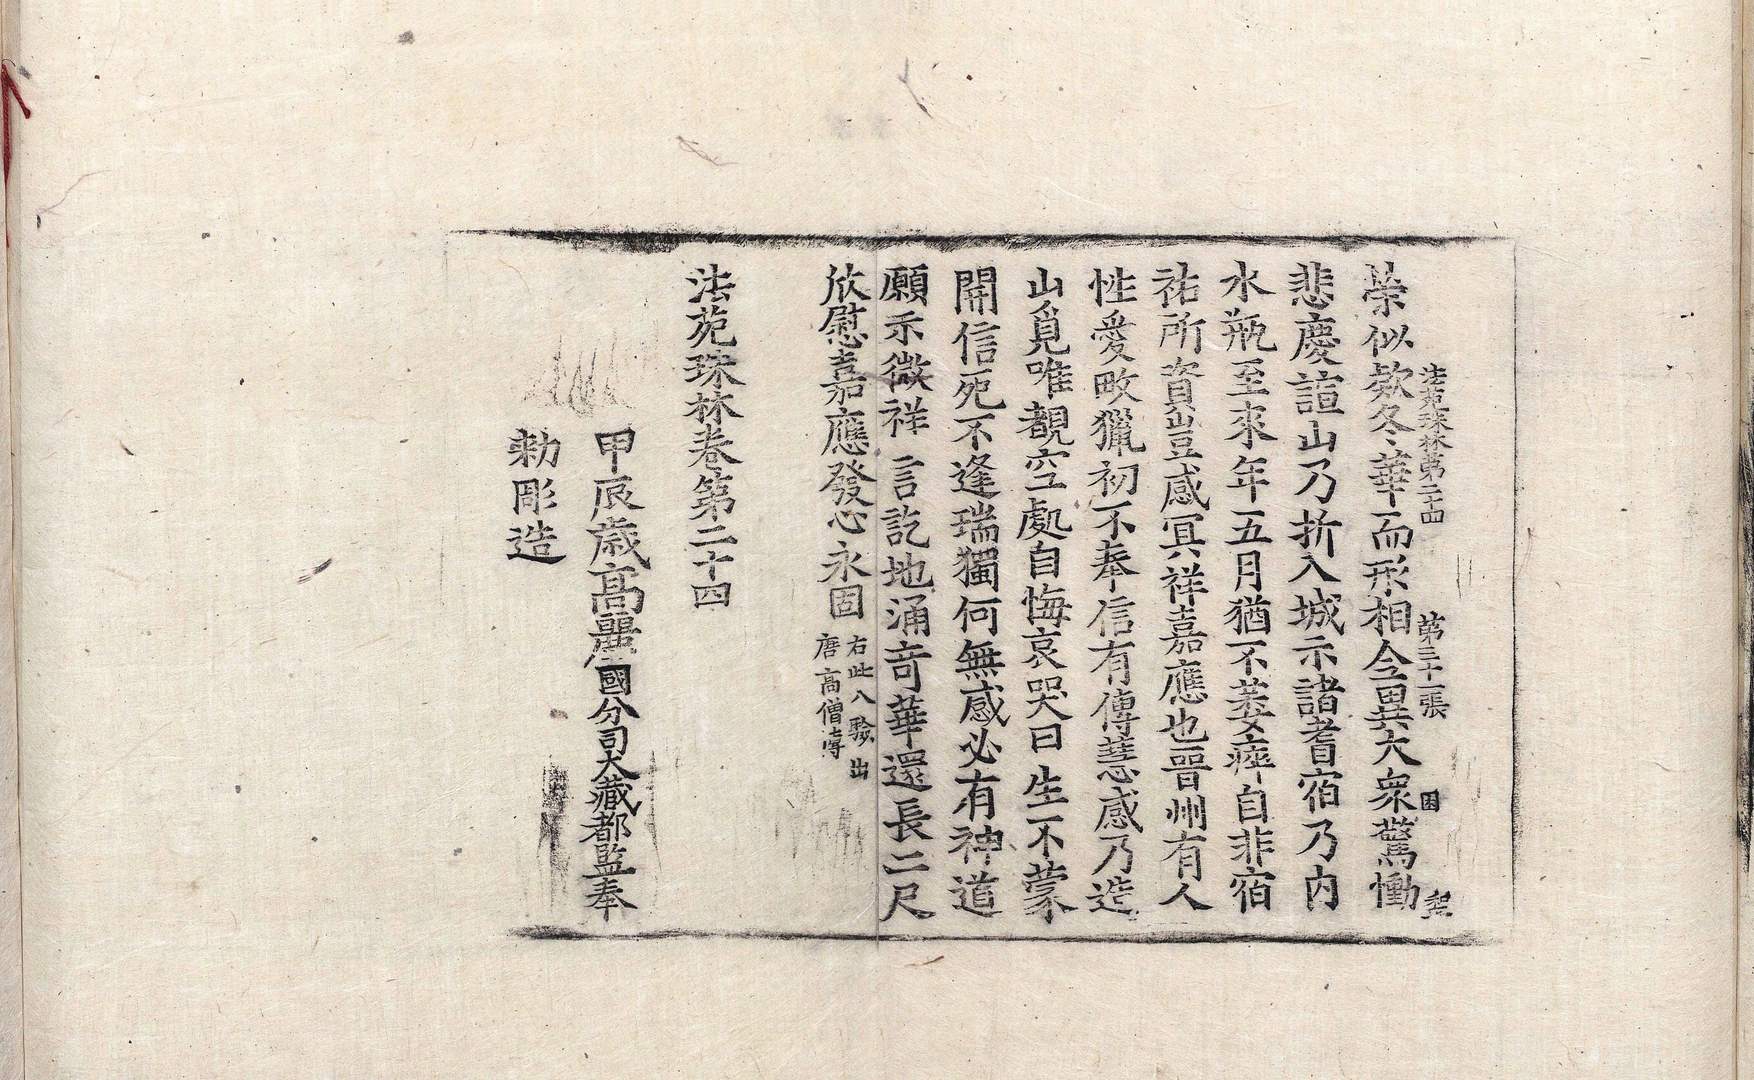 法苑珠林第二十四　第三十一張　囯
榮似欵冬華而形相全異大衆驚慟
悲慶諠山乃折入城示諸耆宿乃内
水瓶至來年五月猶不萎痺自非宿
祐所資豈感冥祥嘉應也晉州有人
性愛畋獵初不奉信有傳慧感乃造
山覓唯覩空處自悔哀哭曰生不蒙
開信死不逢瑞獨何無感必有神道
願示微祥言訖地涌竒華還長二尺
欣慰嘉應發心永固
右此八驗出
唐高僧傳
法苑珠林卷第二十四
甲辰歲高麗國分司大藏都監奉
勅彫造